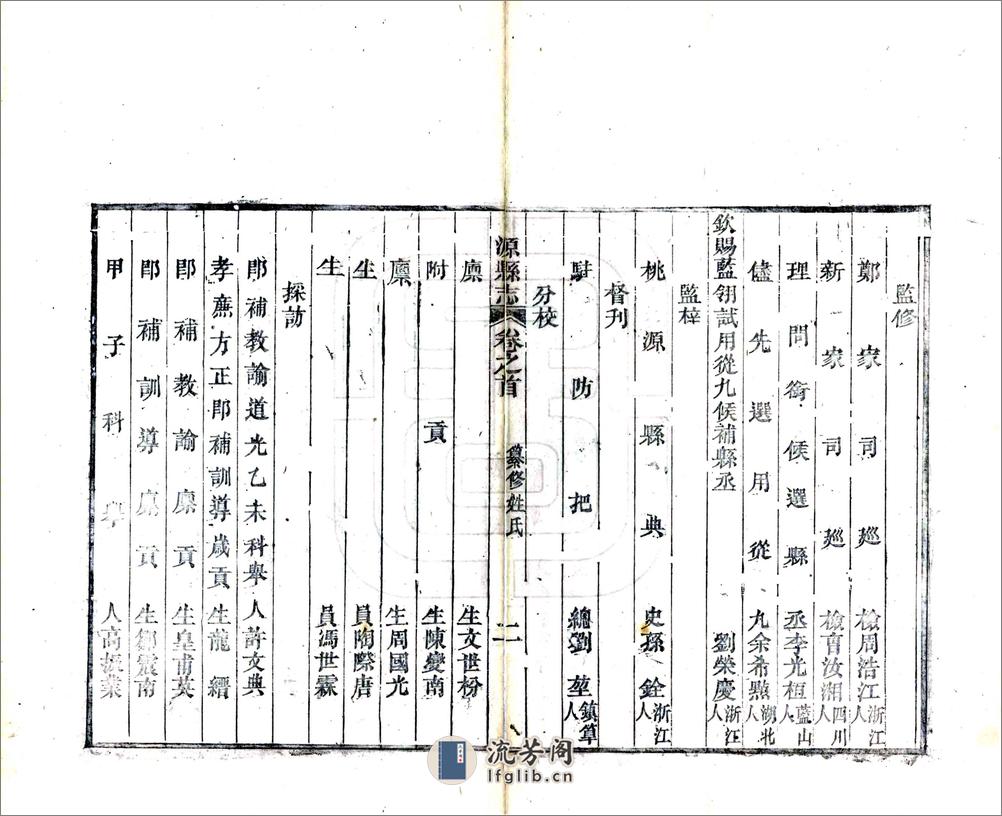 監修
鄭家司廵檢周浩江浙江人
新家司廵檢曹汝湘四川人
理問銜候選縣丞李光桓藍山人
儘先選用從九余希點湖北人
欽賜藍翎試用從九候補縣丞劉榮慶浙江人
監梓
桃源縣典史孫銓浙江人
督刊
駐防把總劉堃鎮筸人
分校
源縣志 卷之首 纂修姓氏 二
廩生文世枌
附貢生陳變南
廩生周國光
生員陶際唐
生員馮世霖
採訪
卽補教諭道光乙未科舉人許文典
孝廉方正卽補訓導歲貢生龍縉
卽補教諭廩貢生皇甫英
卽補訓導廩貢生鄒宸南
甲子科舉人高振業
流芳阁
lfglib.cn